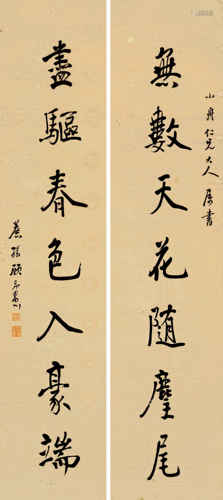 小舟仁兄大人屬書
無數天花隨麈尾
盡驅春色入豪端